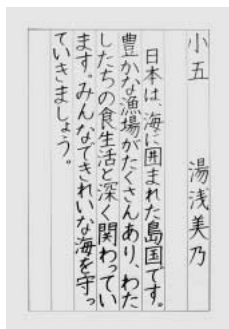 小五　湯浅美乃
日本は、海に囲まれた島国です。
豊かな漁場がたくさんあり、わた
したちの食生活と深く関わってい
ます。みんなできれいな海を守っ
ていきましょう。